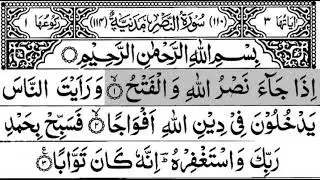 اٰیَاتُهَا ٣ (١١٠) سُوْرَةُ النَّصْرِ مَدَنِیَّةٌ (١١٤) رُکُوْعُهَا ١
بِسْمِ اللهِ الرَّحْمٰنِ الرَّحِیْمِ
اِذَا جَآءَ نَصْرُ اللهِ وَالْفَتْحُ ۝١ وَرَاَیْتَ النَّاسَ
یَدْخُلُوْنَ فِیْ دِیْنِ اللهِ اَفْوَاجًا ۝٢ فَسَبِّحْ بِحَمْدِ
رَبِّكَ وَاسْتَغْفِرْهُ ؕ اِنَّهٗ کَانَ تَوَّابًا ۝٣